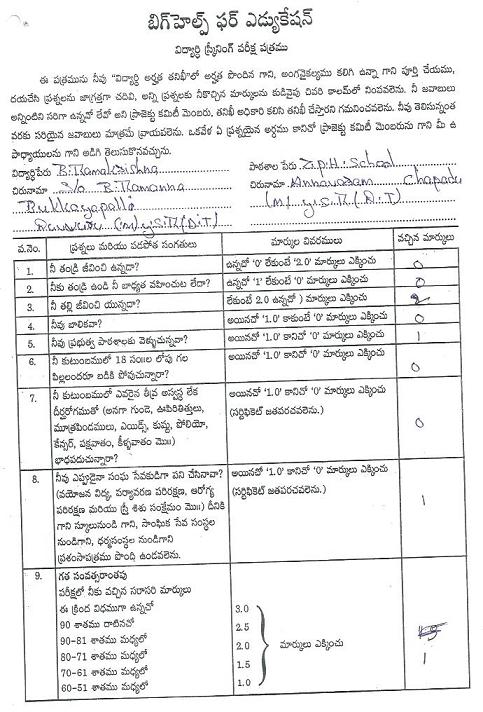 బిగ్‌హెల్ప్ ఫర్ ఎడ్యుకేషన్
విద్యార్థి స్క్రీనింగ్ పరీక్ష పత్రము
ఈ పత్రమును నీవు "విద్యార్థి అర్హత తనిఖీ"లో అర్హత పొందిన గాని, అంగవైకల్యము కలిగి ఉన్నా గాని పూర్తి చేయము,
దయచేసి ప్రశ్నలను జాగ్రత్తగా చదివి, అన్ని ప్రశ్నలకు నీకొచ్చిన మార్కులను కుడివైపు చివరి కాలమ్‌లో నింపవలెను. నీ జవాబులు
అన్నింటిని సరిగా ఉన్నవో లేవో అని ప్రాజెక్టు కమిటీ మెంబరు, తనిఖీ అధికారి కలిసి తనిఖీ చేస్తారని గమనించవలెను. నీవు తెలుసున్నంత
వరకు సరియైన జవాబులు మాత్రమే వ్రాయవలెను. ఒకవేళ ఏ ప్రశ్నయైన అర్థము కానిచో ప్రాజెక్టు కమిటీ మెంబరును గాని మీ ఉ
పాధ్యాయులను గాని అడిగి తెలుసుకొనవచ్చును.
విద్యార్థిపేరు B. Ramakrishna పాఠశాల పేరు Z.P.H. School
చిరునామా S/o B. Ramanna చిరునామా Annavaram Chapadu
Bukkayapalli (M) Y.S.R (D.T)
(M) Y.S.R (D.T)
వ.నెం. ప్రశ్నలు మరియు పడపోత సంగతులు మార్కుల వివరములు వచ్చిన మార్కులు
1. నీ తండ్రి జీవించి ఉన్నదా? ఉన్నదో '0' లేకుంటే '2.0' మార్కులు ఎక్కించు 0
2. నీకు తండ్రి ఉండి నీ బాధ్యత వహించుట లేదా? ఉన్నచో '1' లేకుంటే '0' మార్కులు ఎక్కించు 0
3. నీ తల్లి జీవించి యున్నదా? లేకుంటే 2.0 ఉన్నచో ) మార్కులు ఎక్కించు 2
4. నీవు బాలికవా? అయినచో '1.0' కాకుంటే '0' మార్కులు ఎక్కించు 0
5. నీవు ప్రభుత్వ పాఠశాలకు వెళ్ళుచున్నవా? అయినచో '1.0' కానిచో '0' మార్కులు ఎక్కించు 1
6. నీ కుటుంబములో 18 సం॥ల లోపు గల
పిల్లలందరూ బడికి పోవుచున్నారా? అయినచో '1.0' కానిచో '0' మార్కులు ఎక్కించు 0
7. నీ కుటుంబములో ఎవరైన తీవ్ర అస్వస్థ లేక
దీర్ఘరోగముతో (అనగా గుండె, ఊపిరితిత్తులు,
మూత్రపిండములు, ఎయిడ్స్, కుష్ఠు, పోలియో,
కేన్సర్, పక్షవాతం, కీళ్ళవాతం మొ॥)
భాధపడుచున్నారా? అయినచో '1.0' కానిచో '0' మార్కులు ఎక్కించు
(సర్టిఫికెట్ జతపరచవలెను.) 0
8. నీవు ఎప్పుడైనా సంఘ సేవకుడిగా పని చేసినావా?
(వయోజన విద్య, పర్యావరణ పరిరక్షణ, ఆరోగ్య
పరిరక్షణ మరియు స్త్రీ శిశు సంక్షేమం మొ॥) దీనికి
గాని స్కూలునుండి గాని, సాంఘిక సేవ సంస్థల
నుండిగాని, ధర్మసంస్థల నుండిగాని
ప్రశంసాపత్రము పొంది ఉండవలెను. అయినచో '1.0' కానిచో '0' మార్కులు ఎక్కించు
(సర్టిఫికెట్ జతపరచవలెను.) 1
9. గత సంవత్సరాంతపు
పరీక్షలో నీకు వచ్చిన సరాసరి మార్కులు
ఈ క్రింద విధముగా ఉన్నచో 3.0
90 శాతము దాటినచో 2.5
90-81 శాతము మధ్యలో 2.0 మార్కులు ఎక్కించు
80-71 శాతము మధ్యలో 1.5 1
70-61 శాతము మధ్యలో 1.0
60-51 శాతము మధ్యలో